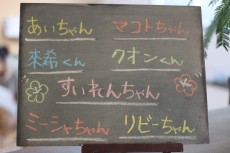 あいちゃん マコトちゃん
來希くん クオンくん
すいれんちゃん
ミーシャちゃん リビーちゃん